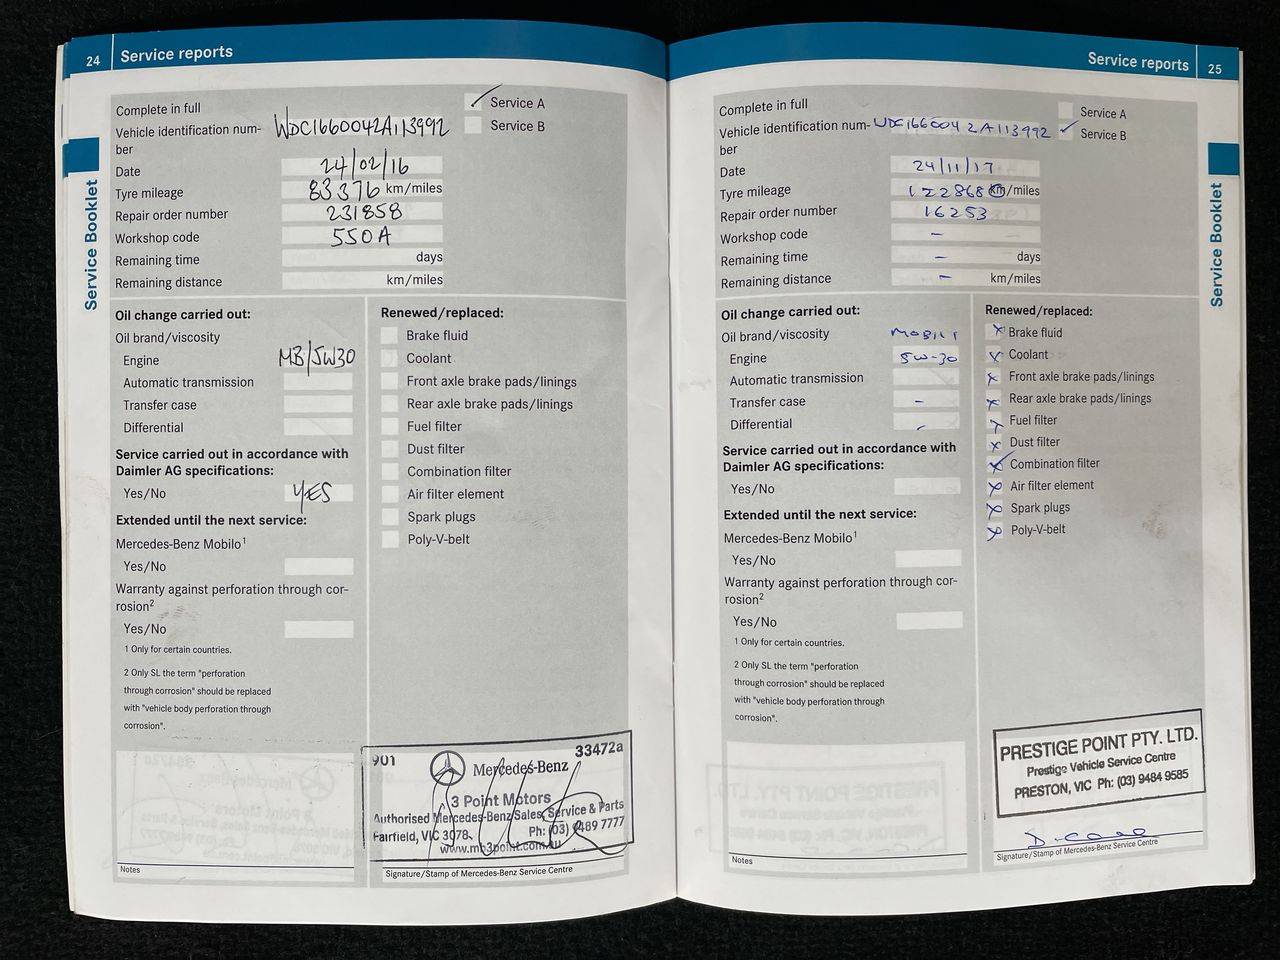 24 Service reports
Service Booklet
Complete in full
Service A
Vehicle identification num-
ber
WDC1660042A113992
Service B
Date 24/02/16
Tyre mileage 83376 km/miles
Repair order number 231858
Workshop code 550A
Remaining time days
Remaining distance km/miles
Oil change carried out:
Oil brand/viscosity
Engine MB/5W30
Automatic transmission
Transfer case
Differential
Service carried out in accordance with
Daimler AG specifications:
Yes/No YES
Extended until the next service:
Mercedes-Benz Mobilo1
Yes/No
Warranty against perforation through cor-
rosion2
Yes/No
1 Only for certain countries.
2 Only SL the term "perforation
through corrosion" should be replaced
with "vehicle body perforation through
corrosion".
Notes
Renewed/replaced:
Brake fluid
Coolant
Front axle brake pads/linings
Rear axle brake pads/linings
Fuel filter
Dust filter
Combination filter
Air filter element
Spark plugs
Poly-V-belt
901 33472a
Mercedes-Benz
3 Point Motors
Authorised Mercedes-Benz Sales, Service & Parts
Fairfield, VIC 3078. Ph: (03) 9489 7777
www.mb3point.com.au
Signature/Stamp of Mercedes-Benz Service Centre
Service reports 25
Service Booklet
Complete in full
Service A
Vehicle identification num-
ber
WDC1660042A113992
Service B
Date 24/11/17
Tyre mileage 122868 km/miles
Repair order number 16253
Workshop code -
Remaining time - days
Remaining distance - km/miles
Oil change carried out:
Oil brand/viscosity MOBIL 1
Engine 5W-30
Automatic transmission
Transfer case -
Differential -
Service carried out in accordance with
Daimler AG specifications:
Yes/No
Extended until the next service:
Mercedes-Benz Mobilo1
Yes/No
Warranty against perforation through cor-
rosion2
Yes/No
1 Only for certain countries.
2 Only SL the term "perforation
through corrosion" should be replaced
with "vehicle body perforation through
corrosion".
Notes
Renewed/replaced:
Brake fluid
Coolant
Front axle brake pads/linings
Rear axle brake pads/linings
Fuel filter
Dust filter
Combination filter
Air filter element
Spark plugs
Poly-V-belt
PRESTIGE POINT PTY. LTD.
Prestige Vehicle Service Centre
PRESTON, VIC Ph: (03) 9484 9585
Signature/Stamp of Mercedes-Benz Service Centre